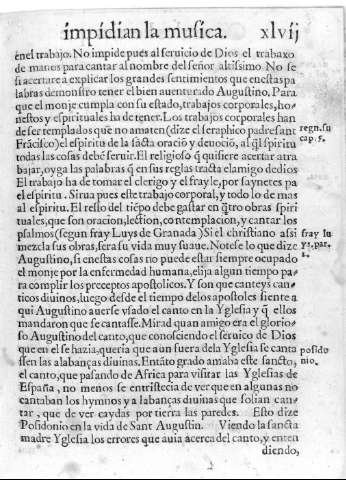 impidian la musica. xlvij
enel trabajo. No impide pues al seruicio de Dios el trabaxo
de manos para cantar al nombre del señor altissimo No se
si acertare a explicar los grandes sentimientos que enestas pa
labras demonstro tener el bien auenturado Augustino, Para
que el monje cumpla con su estado, trabajos corporales, ho-
nestos y espirituales ha de tener. Los trabajos corporales han
de ser templados que no amaten (dize el seraphico padre sant
Frãcisco) el espiritu de la sãcta oració y deuocio, al q̃l spiritu
todas las cosas debẽ seruir. El religioso q̃ quisiere acertar atra
bajar, oyga las palabras q̃ en sus reglas tracta el amigo de dios
El trabajo ha de tomar el clerigo y el frayle, por saynetes pa
el espiritu. Sirua pues este trabajo corporal, y todo lo de mas
al espiritu. El resto del tiẽpo debe gastar en q̃tro obras spiri
tuales, que son oracion, lection, contemplacion, y cantar los
psalmos (segun fray Luys de Granada) Si el christiano assi
mezcla sus obras, sera su vida muy suaue. Notese lo que dize
Augustino, si enestas cosas no puede estar siempre ocupado
el monje por la enfermedad humana, elija algun tiempo pa-
ra complir los preceptos apostolicos. Y son que canteys can-
ticos diuinos, luego desde el tiempo delos apostoles siente a
qui Augustino auerse vsado el canto en la Yglesia y q̃ ellos
mandaron que se cantasse. Mirad quan amigo era el glorio-
so Augustino del canto, que conosciendo el seruicio de Dios
que en el se hazia, queria que aun fuera dela Yglesia se canta
ssen las alabanças diuinas. Entãto grado amaba este sancto,
el canto, que pasando de Africa para visitar las Yglesias de
España, no menos se entristecia de ver que en algunas no
cantaban los hymnos y alabanças diuinas que solian can-
tar, que de ver caydas por tierra las paredes. Esto dize
Posidonio en la vida de Sant Augustin. Viendo la sancta
madre Yglesia los errores que auia acerca del canto, y enten
diendo,
regu. su
cap. 5.
fray lu
ys. par.
posido
nio.